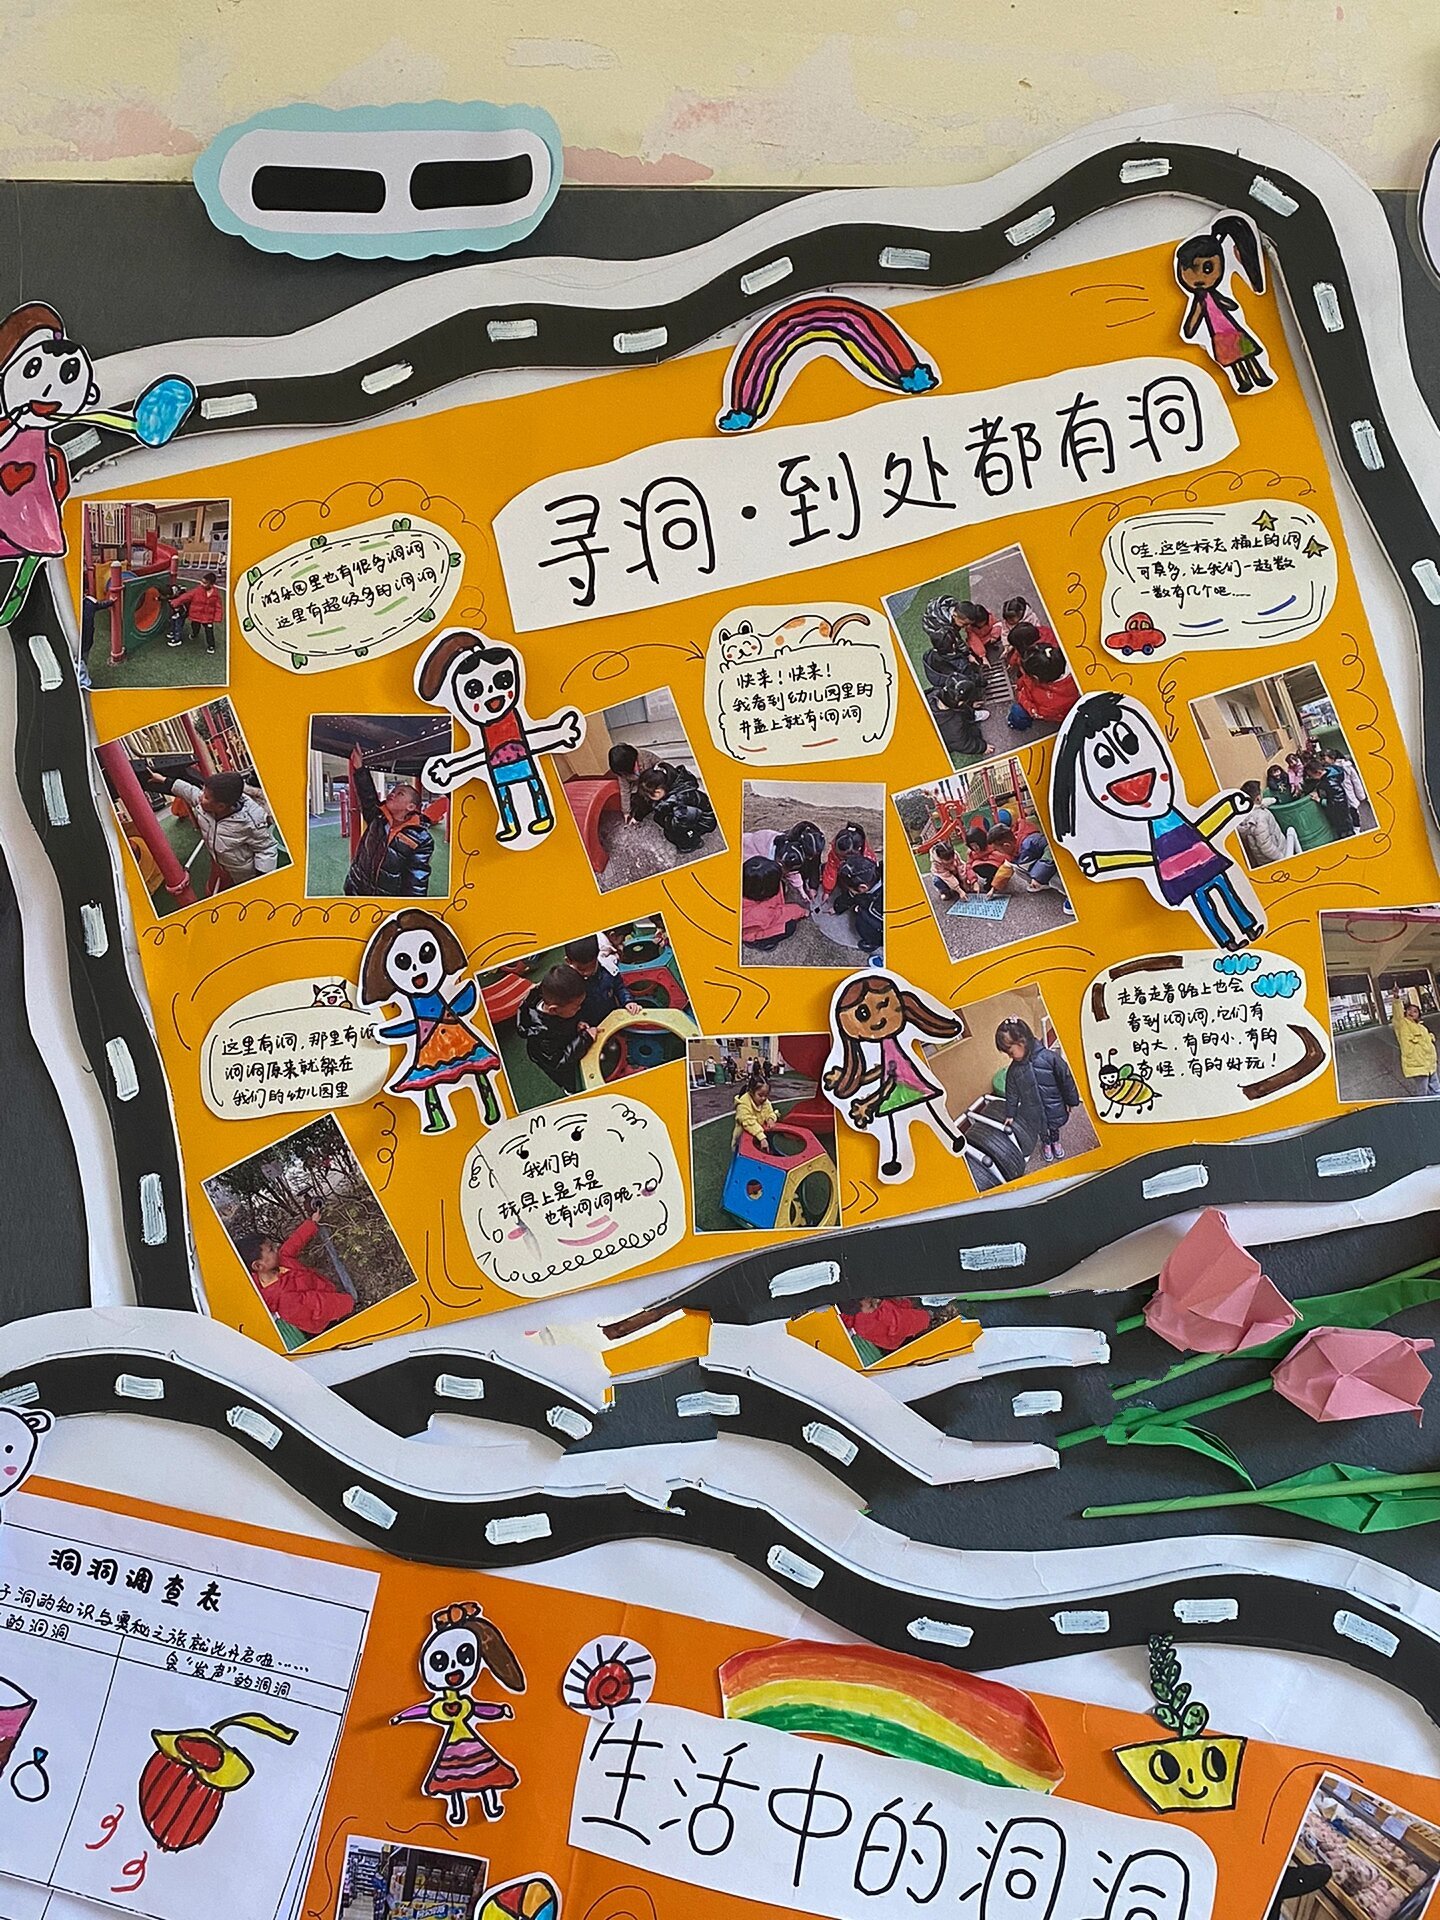 寻洞·到处都有洞
游乐园里也有很多洞洞
这里有超级多的洞洞
快来！快来！
我看到幼儿园里的
井盖上就有洞洞
哇，这些标志桶上的洞
可真多，让我们一起数
一数有几个吧……
这里有洞，那里有洞
洞洞原来就躲在
我们的幼儿园里
我们的
玩具上是不是
也有洞洞呢？
走着走着路上也会
看到洞洞，它们有
的大，有的小，有的
奇怪，有的好玩！
洞洞调查表
洞的知识与奥秘之旅就此开启啦……
的洞洞
会“发声”的洞洞
生活中的洞洞